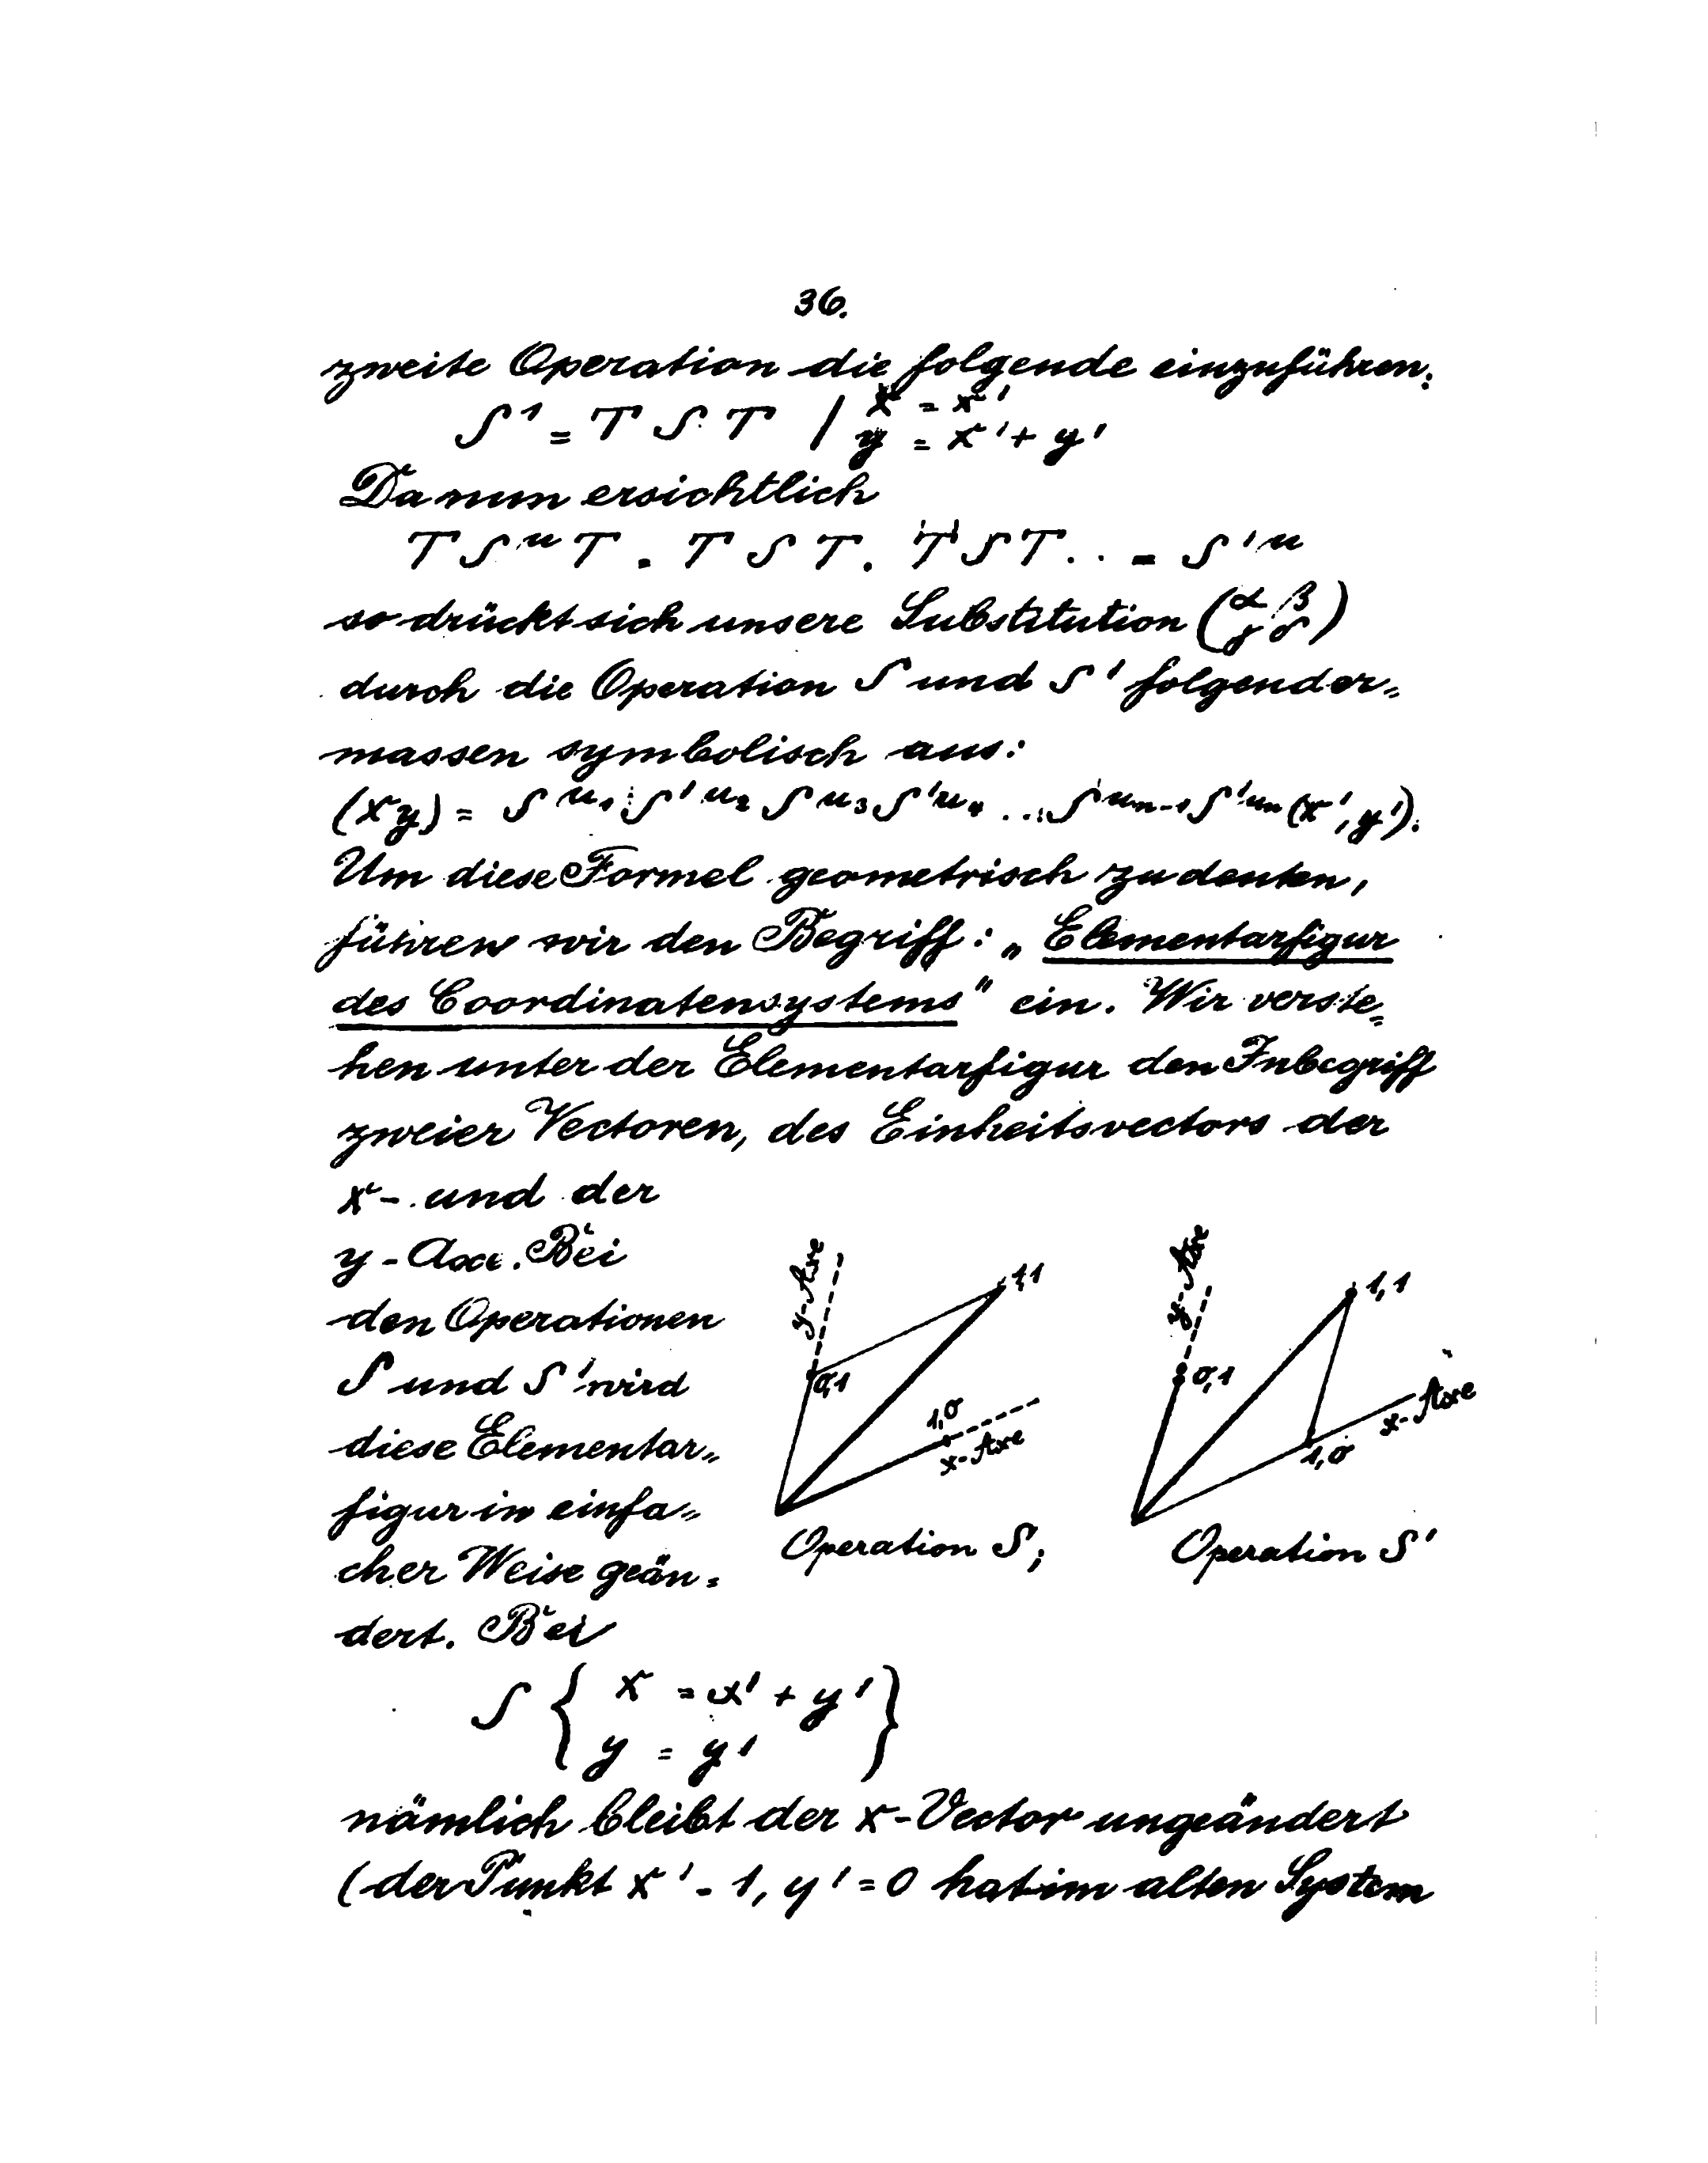 36.
zweite Operation die folgende einzuführen:
S' = T S T / x = x'
y = x' + y'
Da nun ersichtlich
T S^u T = T S T . T S T . . = S'^u
so drückt sich unsere Substitution (α β
γ δ)
durch die Operation S und S' folgender=
massen symbolisch aus:
(x y) = S^u₁ S'^u₂ S^u₃ S'^u₄ ... S^uₙ₋₁ S'^uₙ (x', y').
Um diese Formel geometrisch zu deuten,
führen wir den Begriff: „Elementarfigur
des Coordinatensystems" ein. Wir verste=
hen unter der Elementarfigur den Inbegriff
zweier Vectoren, des Einheitsvectors der
x- und der
y-Axe. Bei
den Operationen
S und S' wird
diese Elementar=
figur in einfa=
cher Weise geän=
dert. Bei
y-Axe
1,1
0,1
1,0
x-Axe
Operation S;
y-Axe
1,1
0,1
x-Axe
1,0
Operation S'
S { x = x' + y'
y = y' }
nämlich bleibt der x-Vector ungeändert
(der Punkt x' = 1, y' = 0 hat im alten System